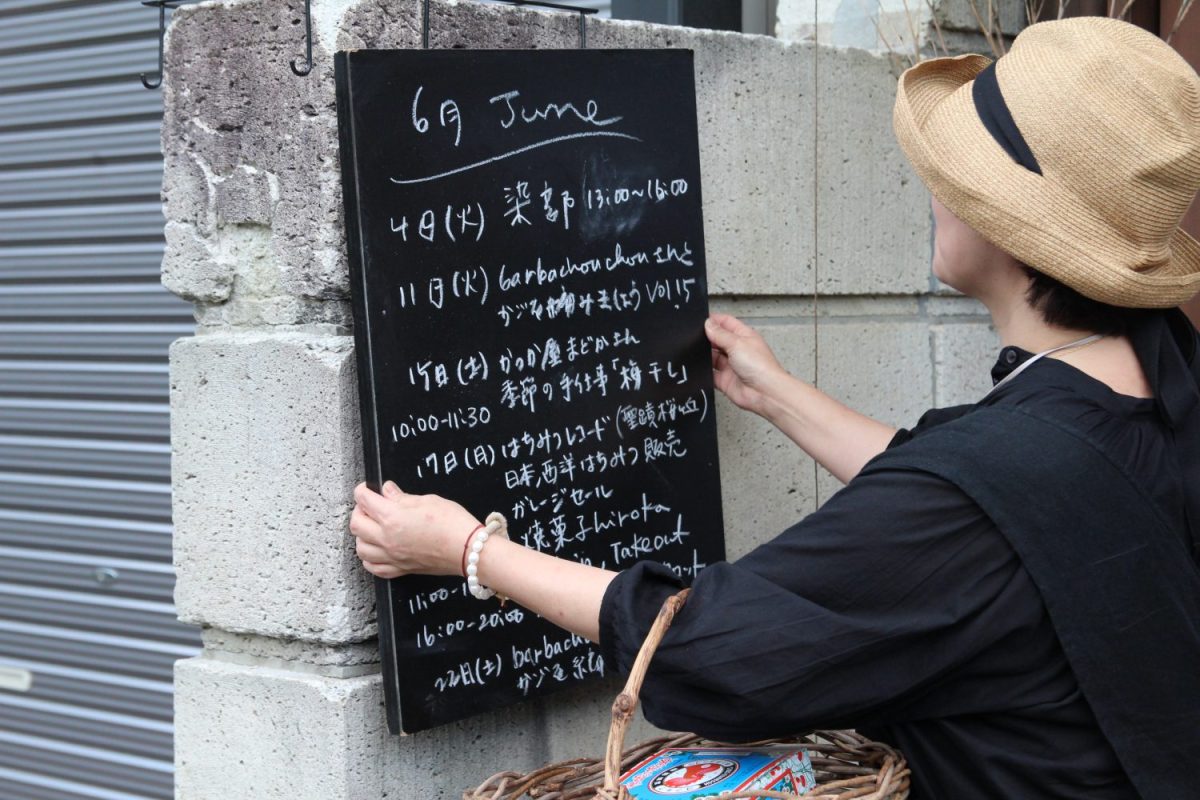 6月 June
4日(火) 染部 13:00~16:00
11日(火) barbachouchouさんと
かごを編みましょう vol.5
15日(土) かつか屋まどかさん
季節の手仕事「梅干し」
10:00-11:30
17日(月) はちみつレコード(聖蹟桜ヶ丘)
日本、西洋はちみつ販売
ガレージセール
焼菓子hiroka
Takeout
11:00-
16:00-20:00
22日(土) barbach